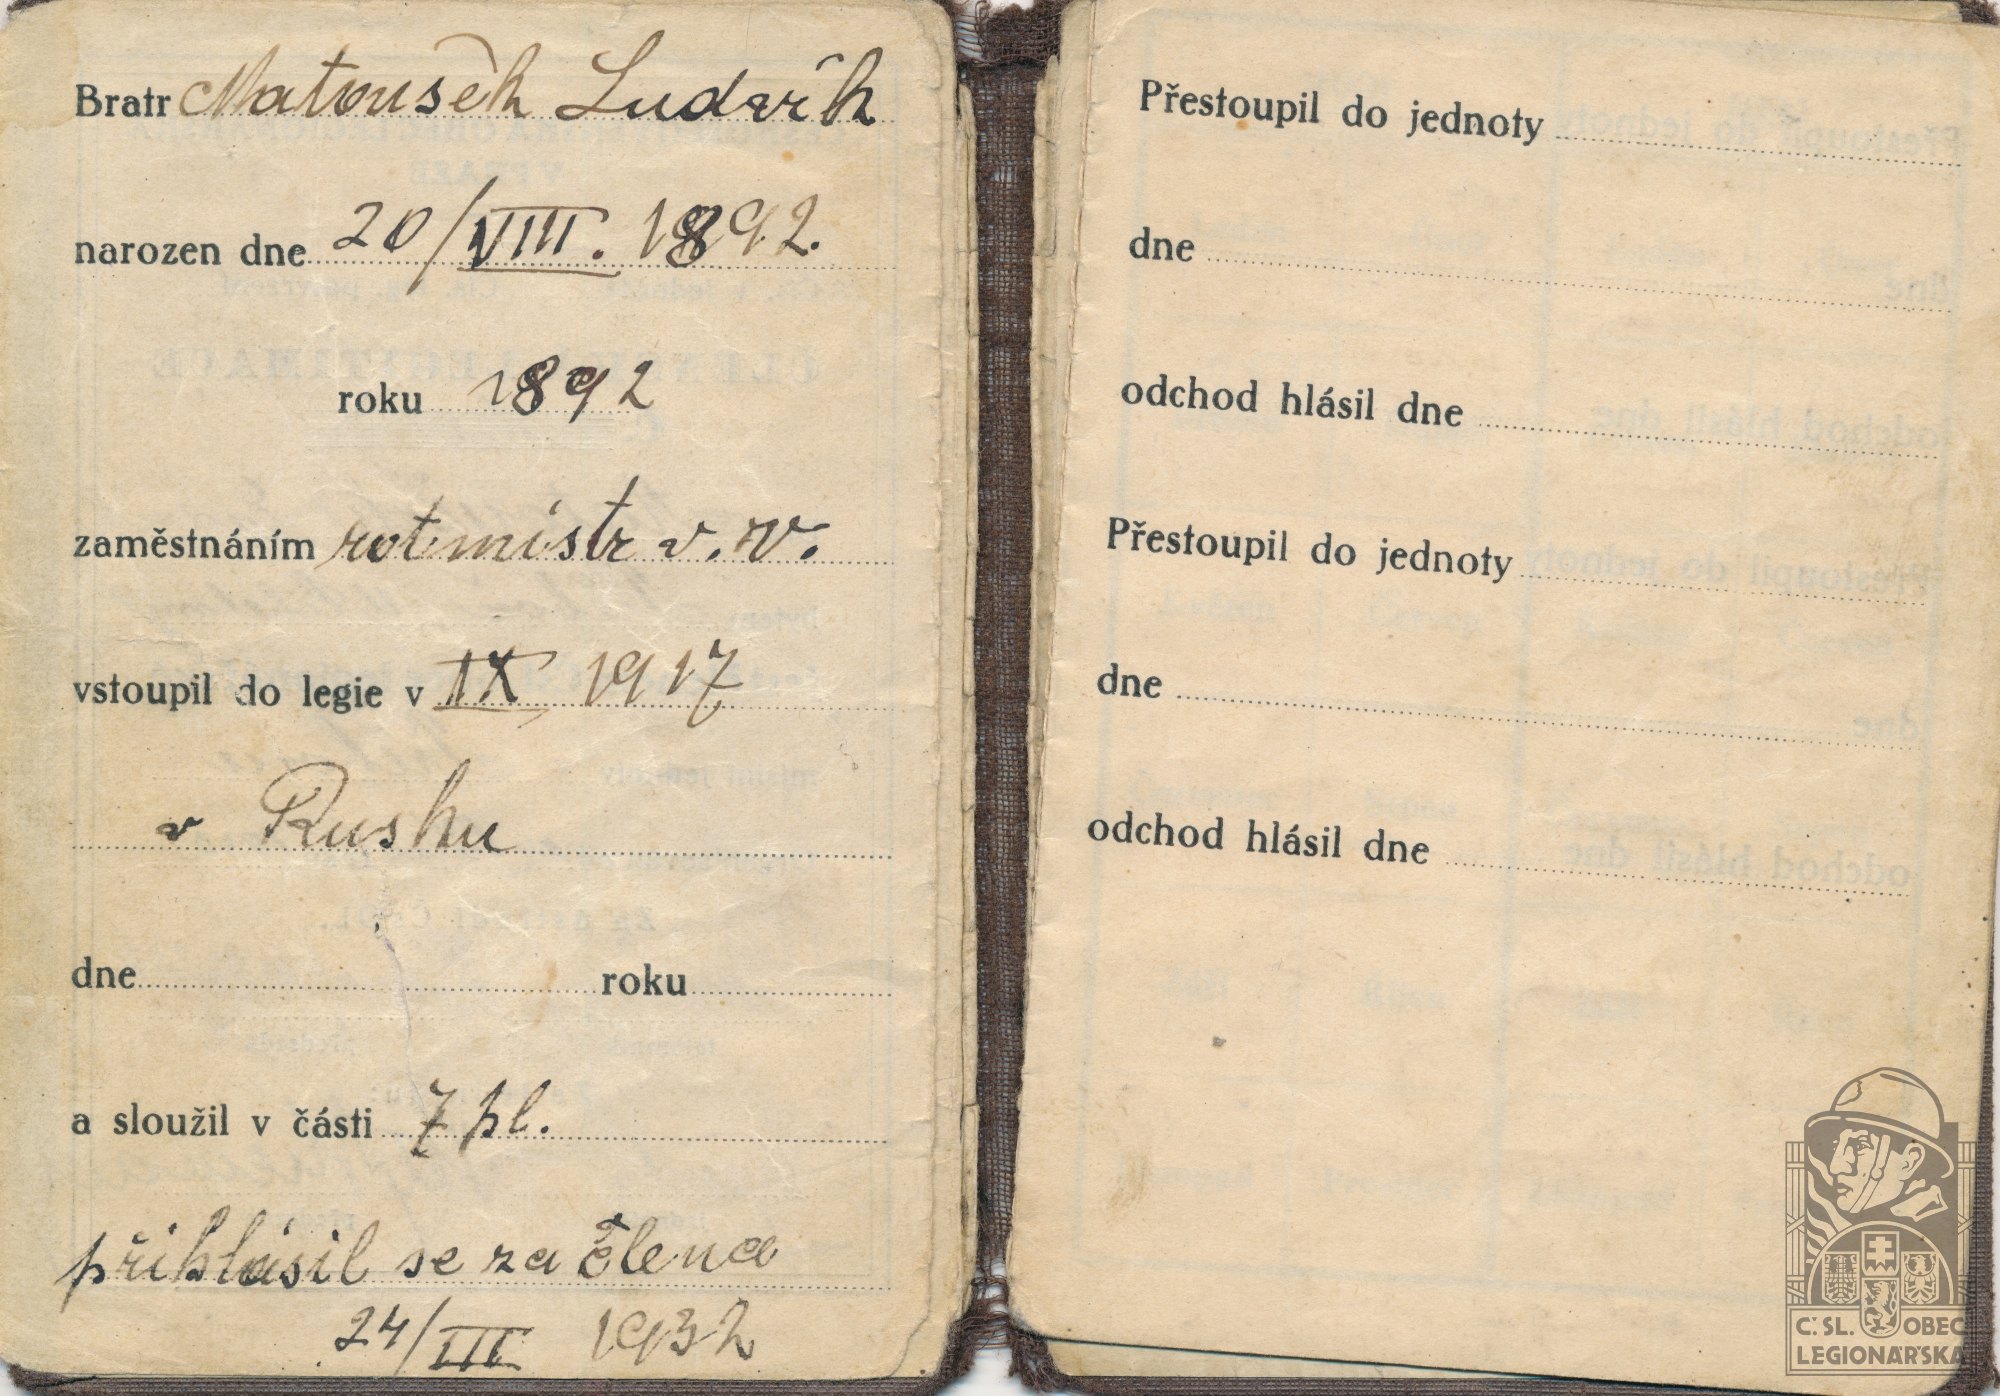 Bratr Matoušek Ludvík
narozen dne 20/VIII. 1892.
roku 1892
zaměstnáním rotmistr v. v.
vstoupil do legie v IX 1917
v Rusku
dne roku
a sloužil v části 7 pl.
přihlásil se za člena
24/III 1932
Přestoupil do jednoty
dne
odchod hlásil dne
Přestoupil do jednoty
dne
odchod hlásil dne
Č. SL. OBEC
LEGIONÁŘSKÁ